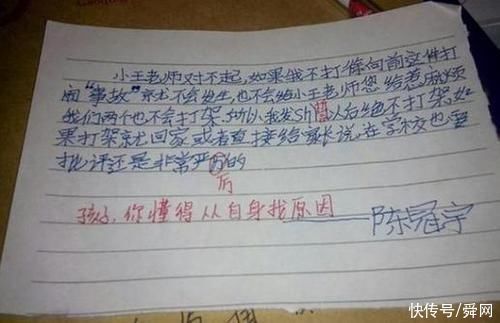 小王老师对不起,如果我不打徐向前这件打
闹“事故”就不会发生,也不会给小王老师您给惹麻烦
我们两个也不会打架,所以我发Shì誓以后绝不打架如
果打架就回家或者直接给家长说,在学校也要
批评还是非常严厉的
厉
孩子,你懂得从自身找原因
陈冠宇
快传号/舜网